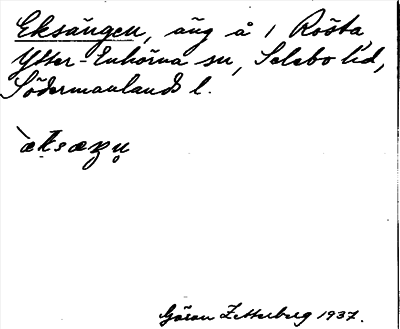 Eksängen, äng å 1 Rösta,
Ytter-Enhörna sn, Selebo hd,
Södermanlands l.
Göran Zetterberg 1937.